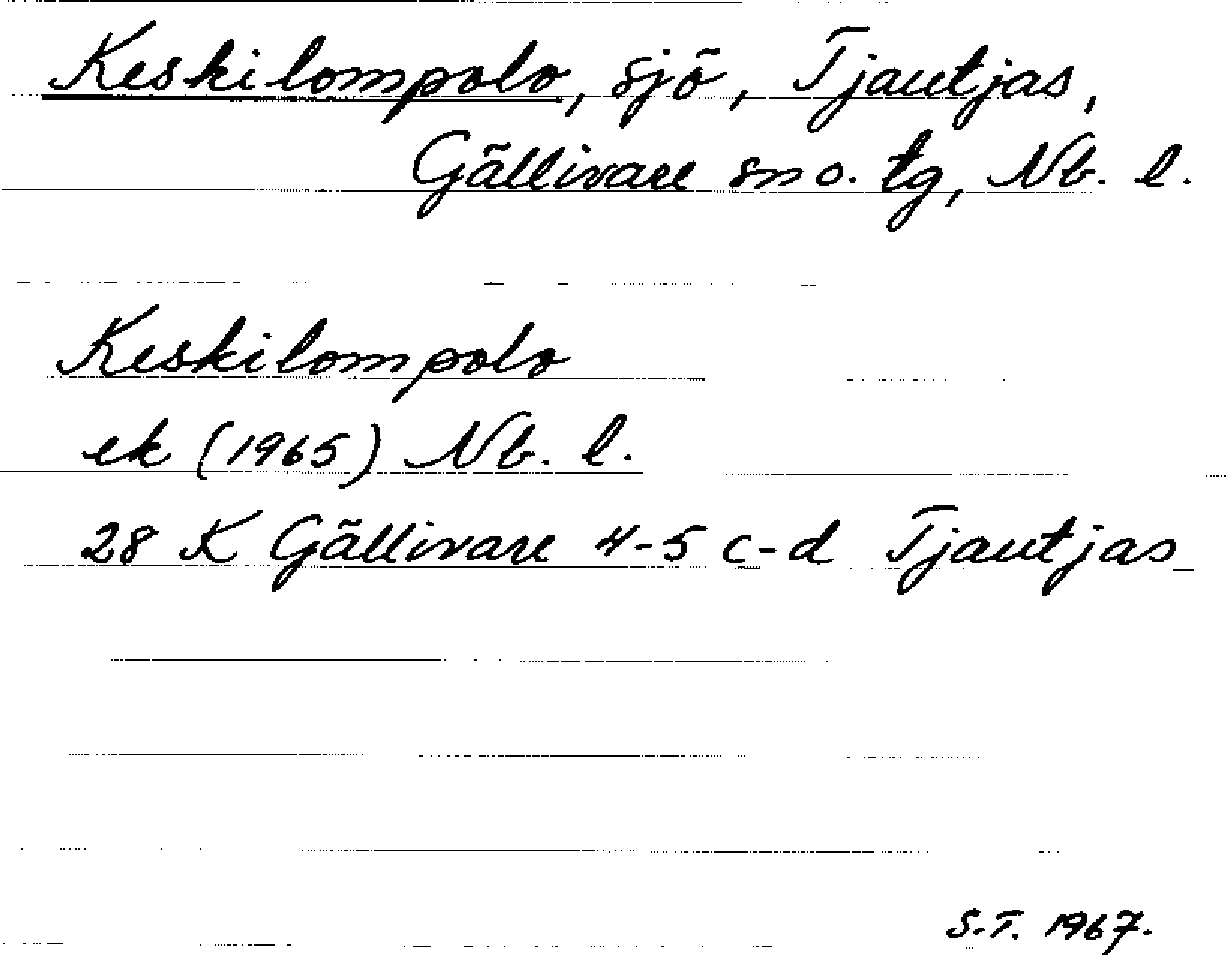 Keskilompolo, sjö, Tjautjas,
Gällivare sn o. tg, Nb. l.
Keskilompolo
ek (1965) Nb. l.
28 K Gällivare 4-5 c-d Tjautjas
S.T. 1967.